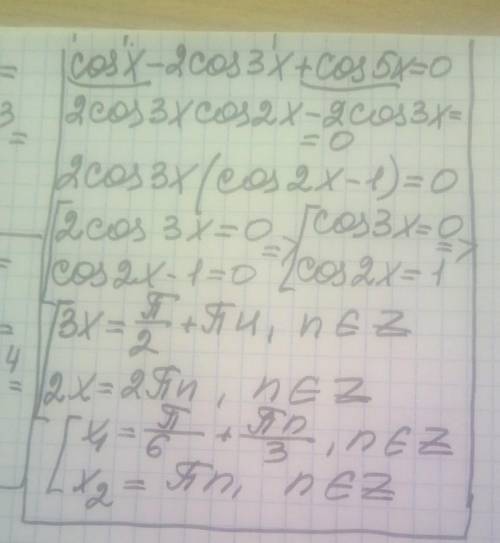 =
3
=
=
=
4
=
cosx - 2cos3x + cos5x = 0
2cos3x cos2x - 2cos3x =
= 0
2cos3x (cos2x - 1) = 0
[ 2cos3x = 0 => [ cos3x = 0 =>
cos2x - 1 = 0 cos2x = 1
[ 3x = π/2 + πn, n ∈ Z
2x = 2πn, n ∈ Z
[ x₁ = π/6 + πn/3, n ∈ Z
x₂ = πn, n ∈ Z